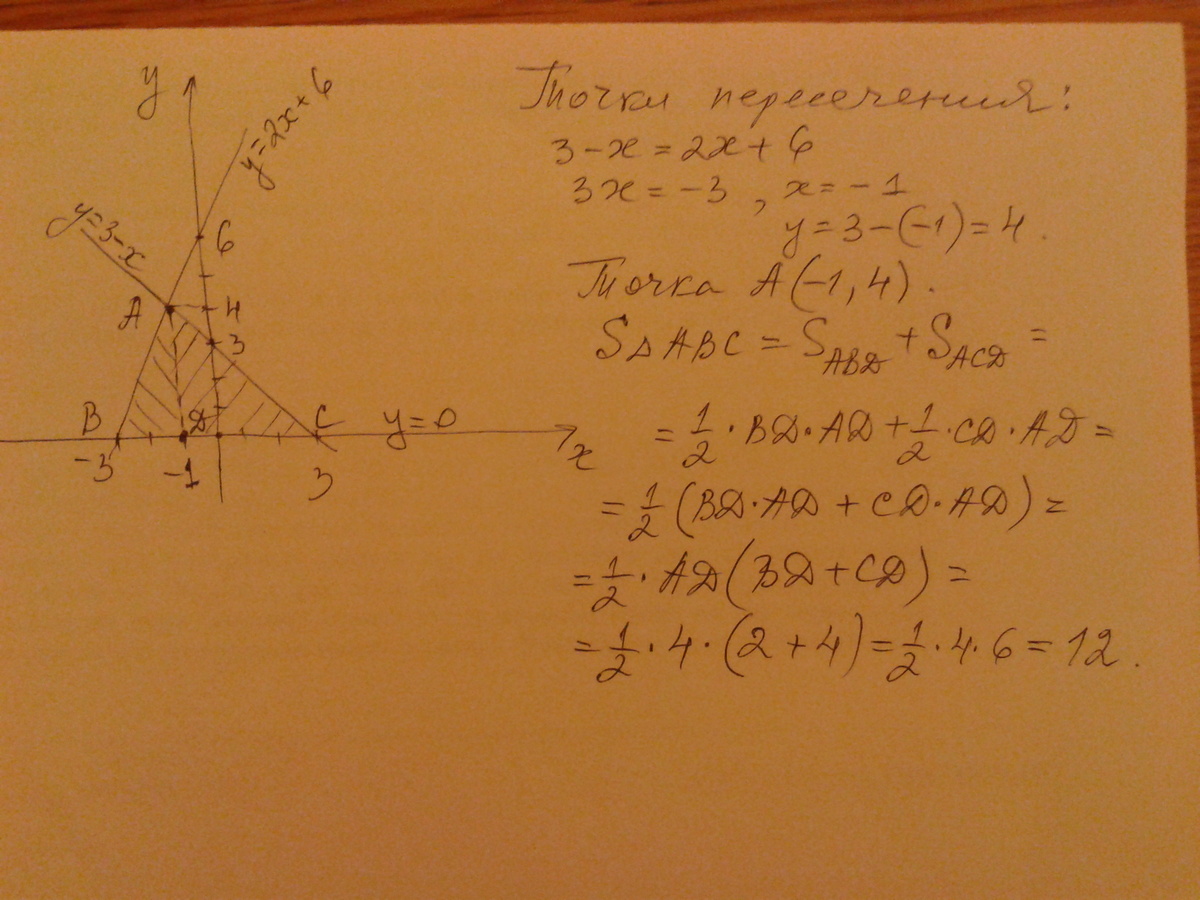 y
y=2x+6
y=3-x
6
A
4
3
B
D
C
y=0
x
-3
-1
3
Точки пересечения:
3-x=2x+6
3x=-3, x=-1
y=3-(-1)=4.
Точка A(-1,4).
S△ABC = S_ABD + S_ACD =
= 1/2 · BD · AD + 1/2 · CD · AD =
= 1/2 (BD · AD + CD · AD) =
= 1/2 · AD (BD + CD) =
= 1/2 · 4 · (2 + 4) = 1/2 · 4 · 6 = 12.